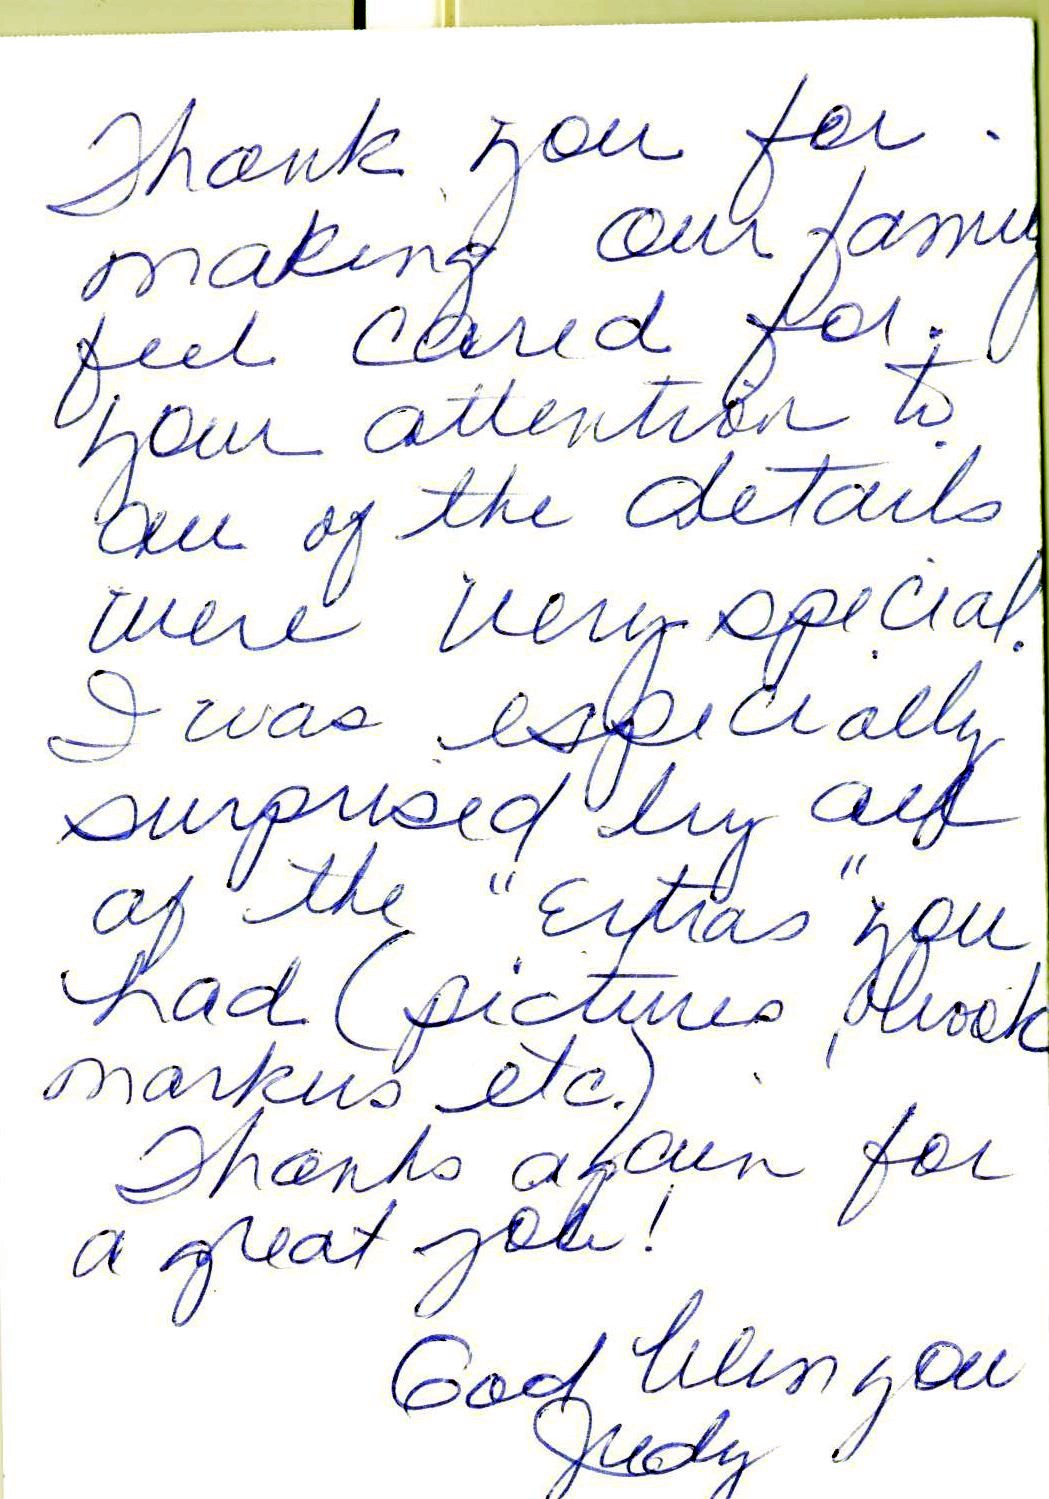 Thank you for
making our family
feel cared for.
your attention to
all of the details
were very special.
I was especially
surprised by all
of the "Extras" you
had (pictures, book
markers etc.)
Thanks again for
a great job!
God bless you
Judy